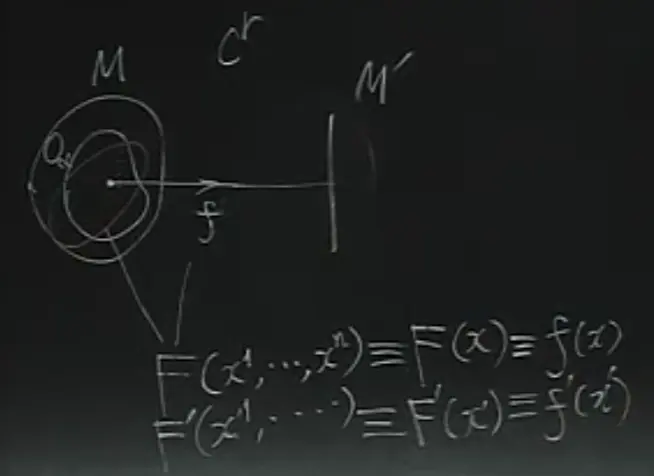 C^r
M
M'
O_α
f
F(x^1,...,x^n)≡F(x)≡f(x)
F'(x'^1,....)≡F'(x')≡f'(x')